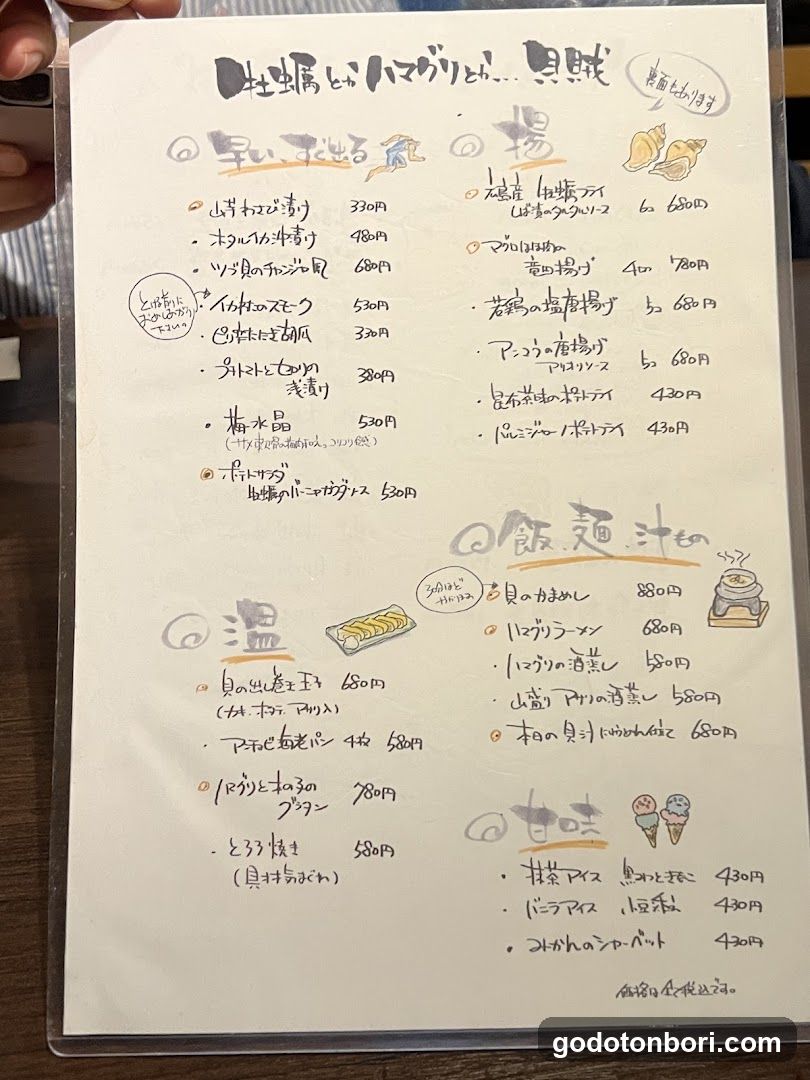 牡蠣とかハマグリとか... 貝賊
裏面もあります
早い、すぐ出る
山芋わさび漬け 330円
ホタルイカ沖漬け 480円
ツブ貝のチャンジャ風 680円
とける前に
おめしあがり
下さい。
イカ軟骨のスモーク 530円
ピリ辛たたき胡瓜 330円
プチトマトとセロリの
浅漬け 380円
梅水晶 530円
(サメ軟骨の梅肉和え。コリコリ食感)
ポテトサラダ
牡蠣のバーニャカウダソース 530円
温
貝の出し巻き玉子 680円
(カキ、ホタテ、アサリ入)
アンチョビ海老パン 4枚 580円
ハマグリと木の子の
グラタン 780円
とろろ焼き 580円
(具材気まぐれ)
揚
広島産 牡蠣フライ
しば漬のタルタルソース 6コ 680円
マグロほほ肉の
竜田揚げ 4コ 780円
若鶏の塩唐揚げ 5コ 680円
アンコウの唐揚げ
アリオリソース 5コ 680円
昆布茶味のポテトフライ 430円
パルミジャーノポテトフライ 430円
飯、麺、汁もの
30分ほど
かかります
貝のかまめし 880円
ハマグリラーメン 680円
ハマグリの酒蒸し 580円
山盛りアサリの酒蒸し 580円
本日の貝汁にゅうめん仕立て 680円
甘味
抹茶アイス 黒みつときなこ 430円
バニラアイス 小豆添え 430円
みかんのシャーベット 430円
価格は全て税込です。
godotonbori.com